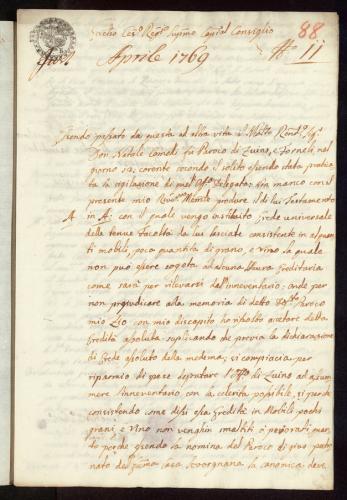 88
Eccelso Ces.º Reg.º Supmo Capital Consiglio
Aprile 1769
N.º 11
Essendo passato da questa ad altra vita il Molto Rend.º Sig.r
Don Natale Comelli fu Paroco di Zuino, e Fornelli nel
giorno 22. corrente secondo il solito essendo stata pratica
ta la sigilazione di quel Off.º Delegato: non manco con il
presente mio Rever.mo Memle produre il di lui Testamento
A in A: con il quale vengo instituito erede universale
delle tenue facoltà da lui lasciate consistente in alquan
ti mobile, poca quantità di grano, e vino la quale
non può essere sogeta ad alcuna usura ereditaria
come sarà per rilevarsi dall'innventario: onde per
non pregiudicare alla memoria di detto Paroco
mio Zio con mio discapito ho risolto acetare detta
Eredità asoluta suplicando che previa la dichiarazione
di Erede asoluto della medema; vi compiacia per
risparmio di spese deputare l'Off.º di Zuino ad assu
mere l'innventario, con la celerità possibile, si perche
consistendo come dissi essa Eredità in Mobili pochi
grani, e vino non venghin smaltiti o deteriorati men
tre, perche essendo la nomina del Paroco di gius patro
nato del casa Savorgnana la canonica deve